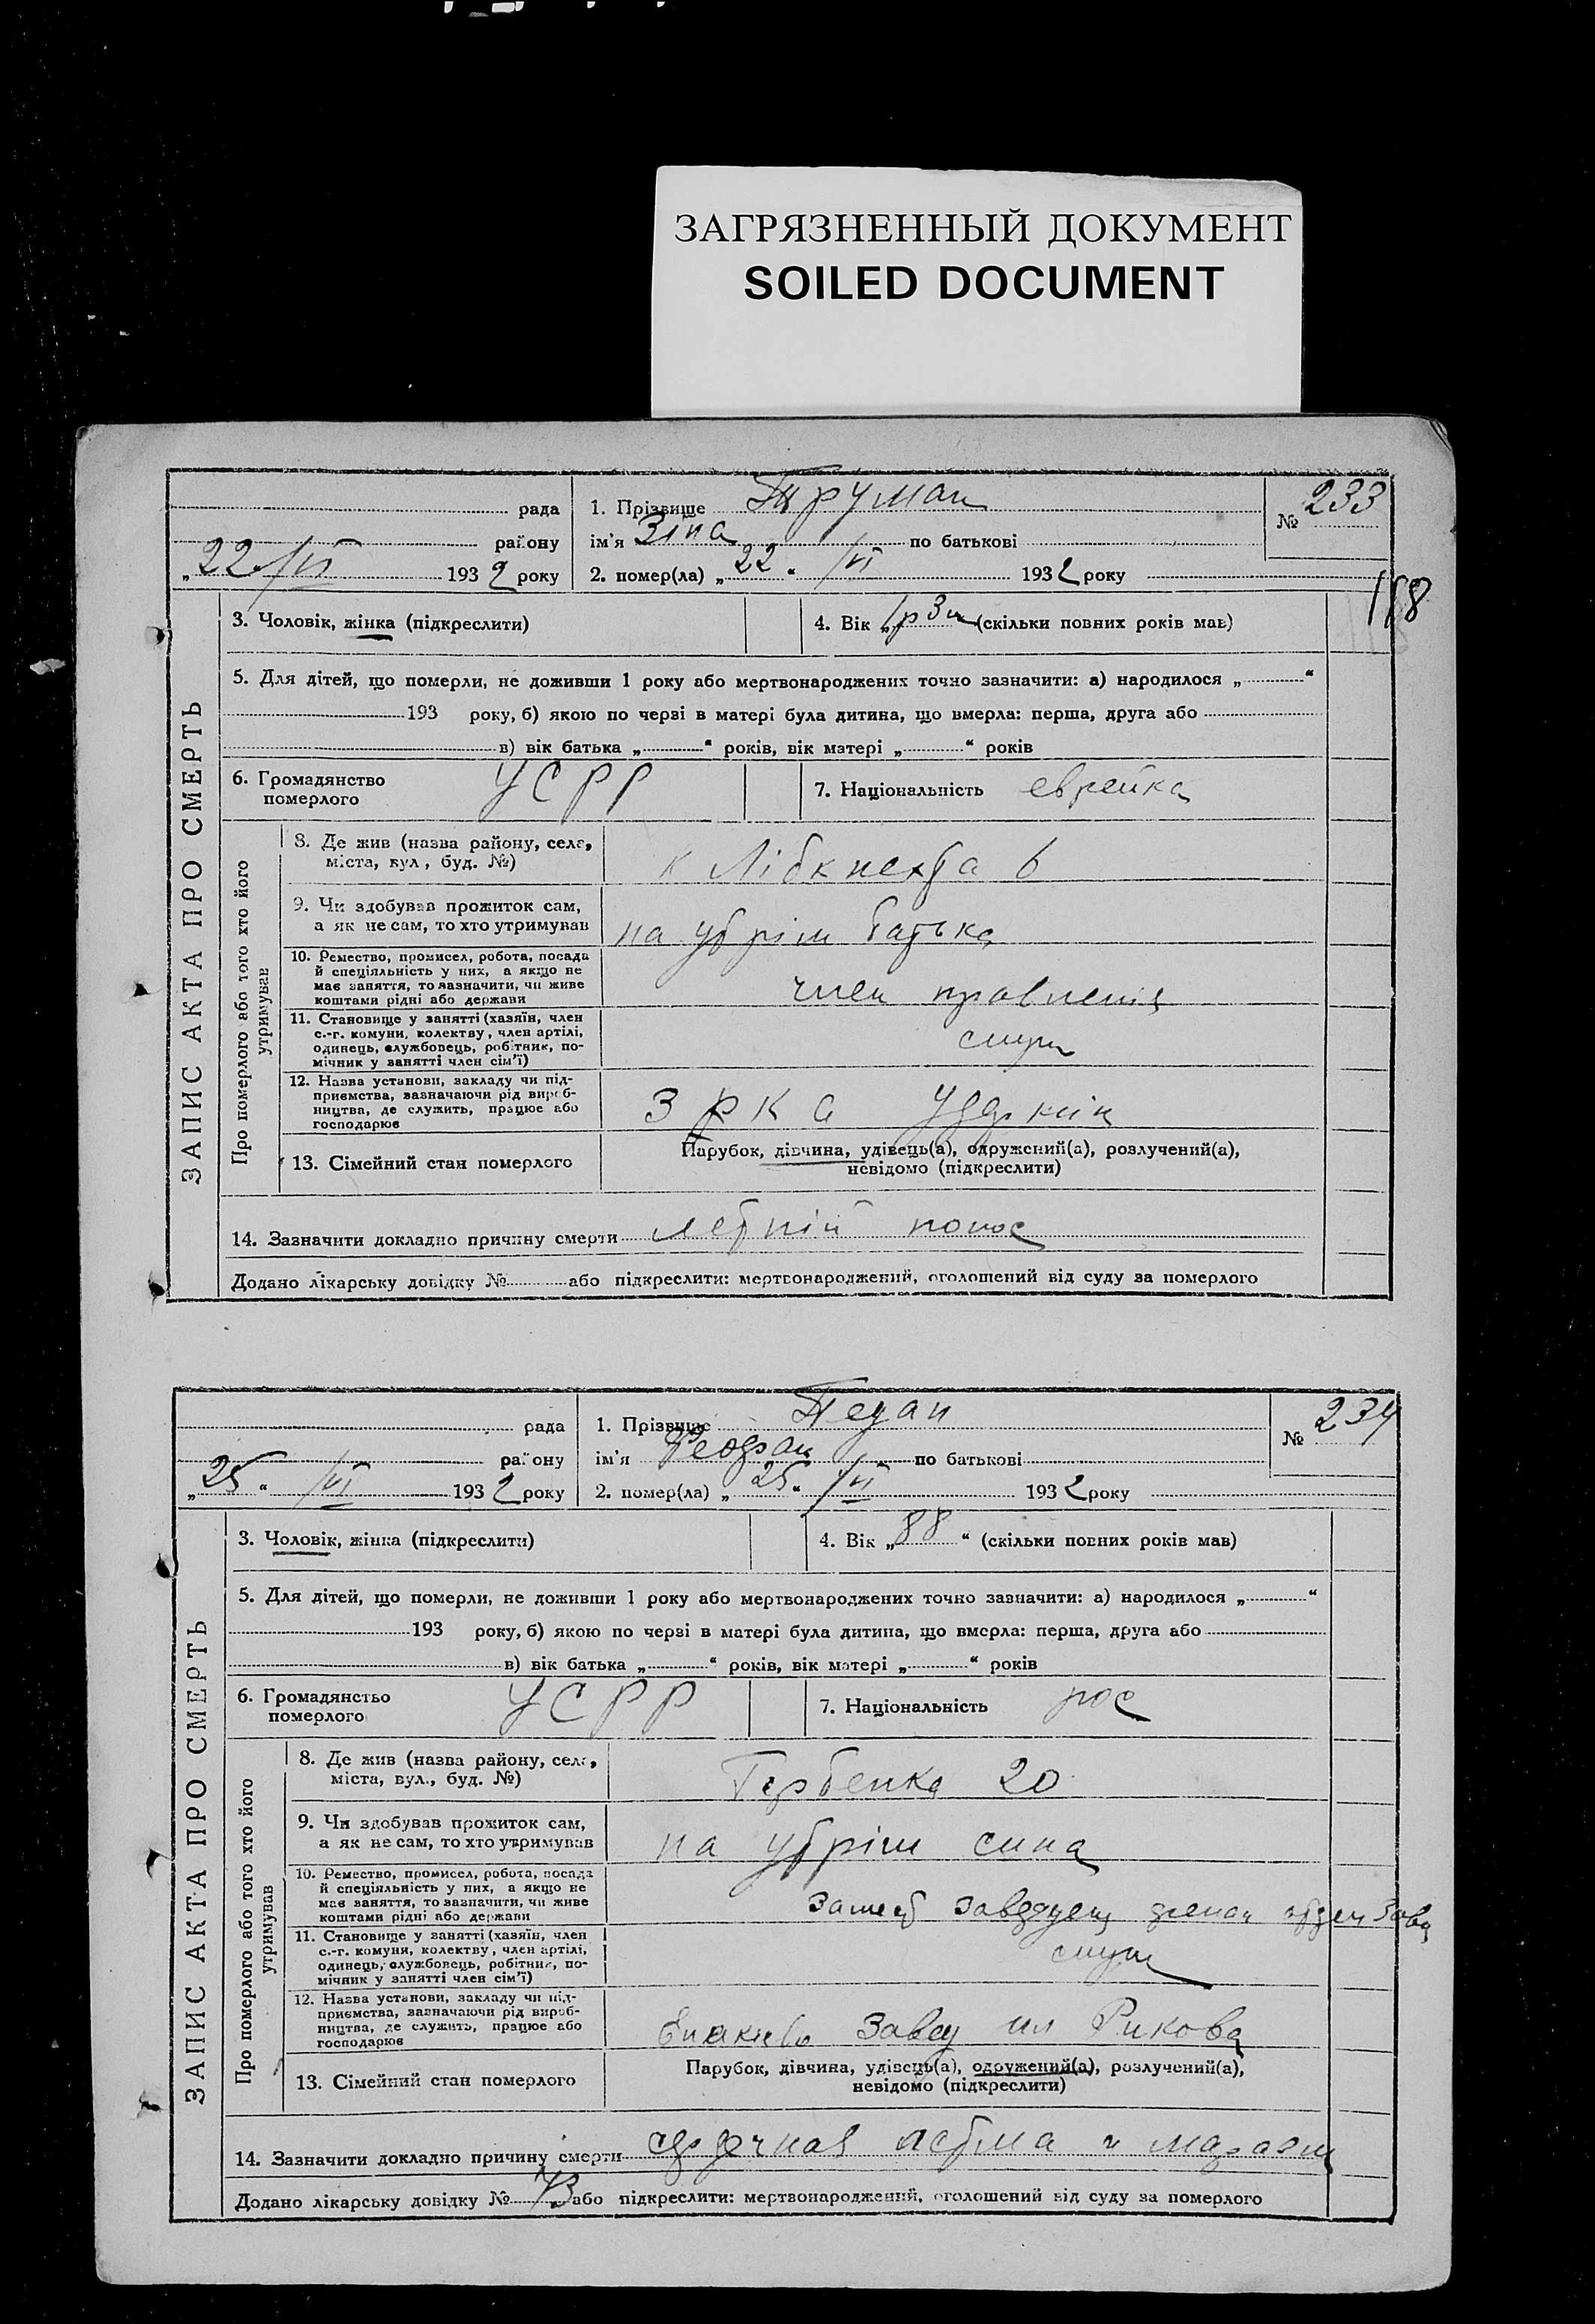 ЗАГРЯЗНЕННЫЙ ДОКУМЕНТ
SOILED DOCUMENT
рада
району
„22 /VI 1932 року
1. Прізвище Труман
ім'я Зіна по батькові
2. помер(ла) „22“ /VI 1932 року
№ 233
118
ЗАПИС АКТА ПРО СМЕРТЬ
3. Чоловік, жінка (підкреслити)
4. Вік „1р 3м (скільки повних років мав)
5. Для дітей, що померли, не доживши 1 року або мертвонароджених точно зазначити: а) народилося „ “
193 року, б) якою по черзі в матері була дитина, що вмерла: перша, друга або
в) вік батька „ “ років, вік матері „ “ років
6. Громадянство
померлого
УСРР
7. Національність еврейка
Про померлого або того хто його
утримував
8. Де жив (назва району, села,
міста, вул, буд. №)
К Лібкнехта 6
9. Чи здобував прожиток сам,
а як не сам, то хто утримував
на утрім батька
10. Ремество, промисел, робота, посада
й спеціяльність у них, а якщо не
має заняття, то зазначити, чи живе
коштами рідні або держави
член правления
11. Становище у занятті (хазяїн, член
с.-г. комуни, колектву, член артілі,
одинець, службовець, робітник, по-
мічник у занятті член сім'ї)
служ
12. Назва установи, закладу чи під-
приємства, зазначаючи рід вироб-
ництва, де служить, працює або
господарює
ЗРК
13. Сімейний стан померлого
Парубок, дівчина, удівець(а), одружений(а), розлучений(а),
невідомо (підкреслити)
14. Зазначити докладно причину смерти летній понос
Додано лікарську довідку № або підкреслити: мертвонароджений, оголошений від суду за померлого
рада
району
„25“ /VI 1932 року
1. Прізвище Педан
ім'я по батькові
2. помер(ла) „25“ /VI 1932 року
№ 234
ЗАПИС АКТА ПРО СМЕРТЬ
3. Чоловік, жінка (підкреслити)
4. Вік „88“ (скільки повних років мав)
5. Для дітей, що померли, не доживши 1 року або мертвонароджених точно зазначити: а) народилося „ “
193 року, б) якою по черзі в матері була дитина, що вмерла: перша, друга або
в) вік батька „ “ років, вік матері „ “ років
6. Громадянство
померлого
УСРР
7. Національність рос
Про померлого або того хто його
утримував
8. Де жив (назва району, села,
міста, вул., буд. №)
20
9. Чи здобував прожиток сам,
а як не сам, то хто утримував
на утрім сина
10. Ремество, промисел, робота, посада
й спеціяльність у них, а якщо не
має заняття, то зазначити, чи живе
коштами рідні або держави
11. Становище у занятті (хазяїн, член
с.-г. комуни, колектву, член артілі,
одинець, службовець, робітник, по-
мічник у занятті член сім'ї)
служ
12. Назва установи, закладу чи під-
приємства, зазначаючи рід вироб-
ництва, де служить, працює або
господарює
Рикова
13. Сімейний стан померлого
Парубок, дівчина, удівець(а), одружений(а), розлучений(а),
невідомо (підкреслити)
14. Зазначити докладно причину смерти сердечная астма и маразм
Додано лікарську довідку № 73 або підкреслити: мертвонароджений, оголошений від суду за померлого